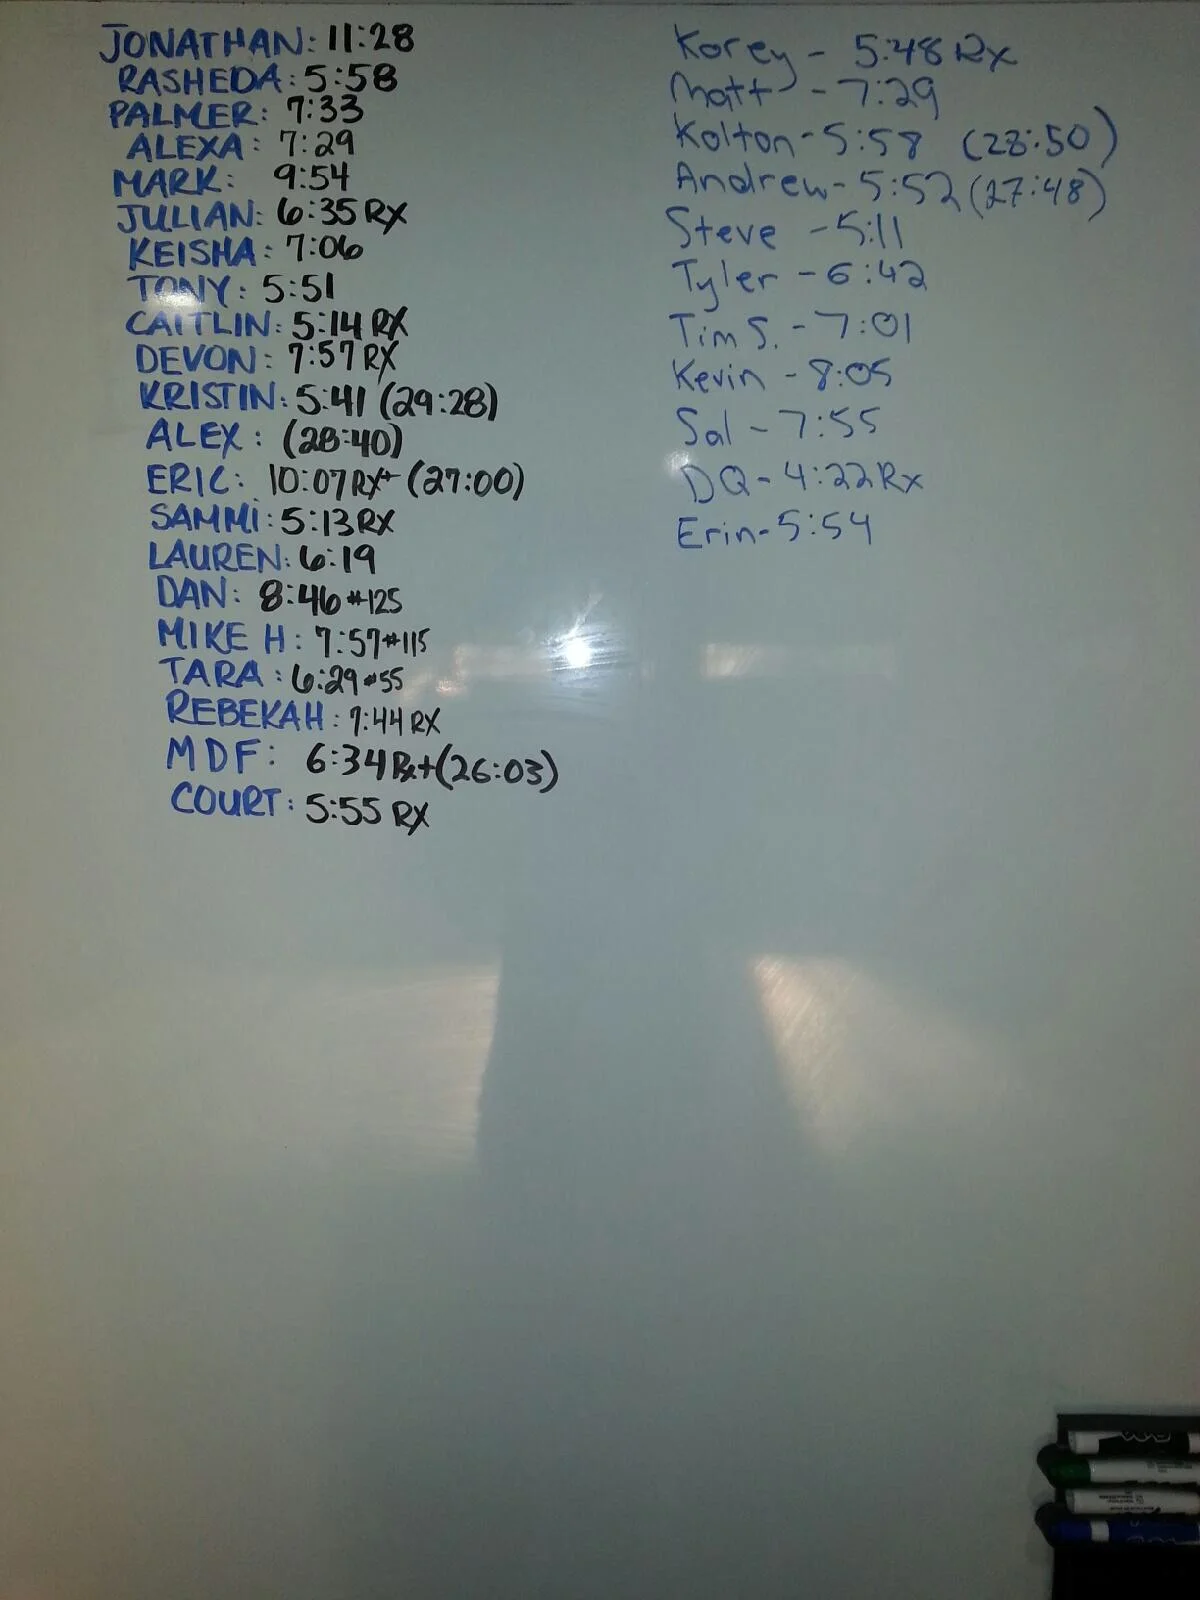 JONATHAN: 11:28
RASHEDA: 5:58
PALMER: 7:33
ALEXA: 7:29
MARK: 9:54
JULIAN: 6:35 RX
KEISHA: 7:06
TONY: 5:51
CAITLIN: 5:14 RX
DEVON: 7:57 RX
KRISTIN: 5:41 (29:28)
ALEX: (28:40)
ERIC: 10:07 RX+ (27:00)
SAMMI: 5:13 RX
LAUREN: 6:19
DAN: 8:46 #125
MIKE H: 7:57 #115
TARA: 6:29 #55
REBEKAH: 7:44 RX
MDF: 6:34 Rx+ (26:03)
COURT: 5:55 RX
Korey - 5:48 Rx
Matt - 7:29
Kolton - 5:58 (28:50)
Andrew - 5:52 (27:48)
Steve - 5:11
Tyler - 6:42
Tim S. - 7:01
Kevin - 8:05
Sal - 7:55
DQ - 4:22 Rx
Erin - 5:54